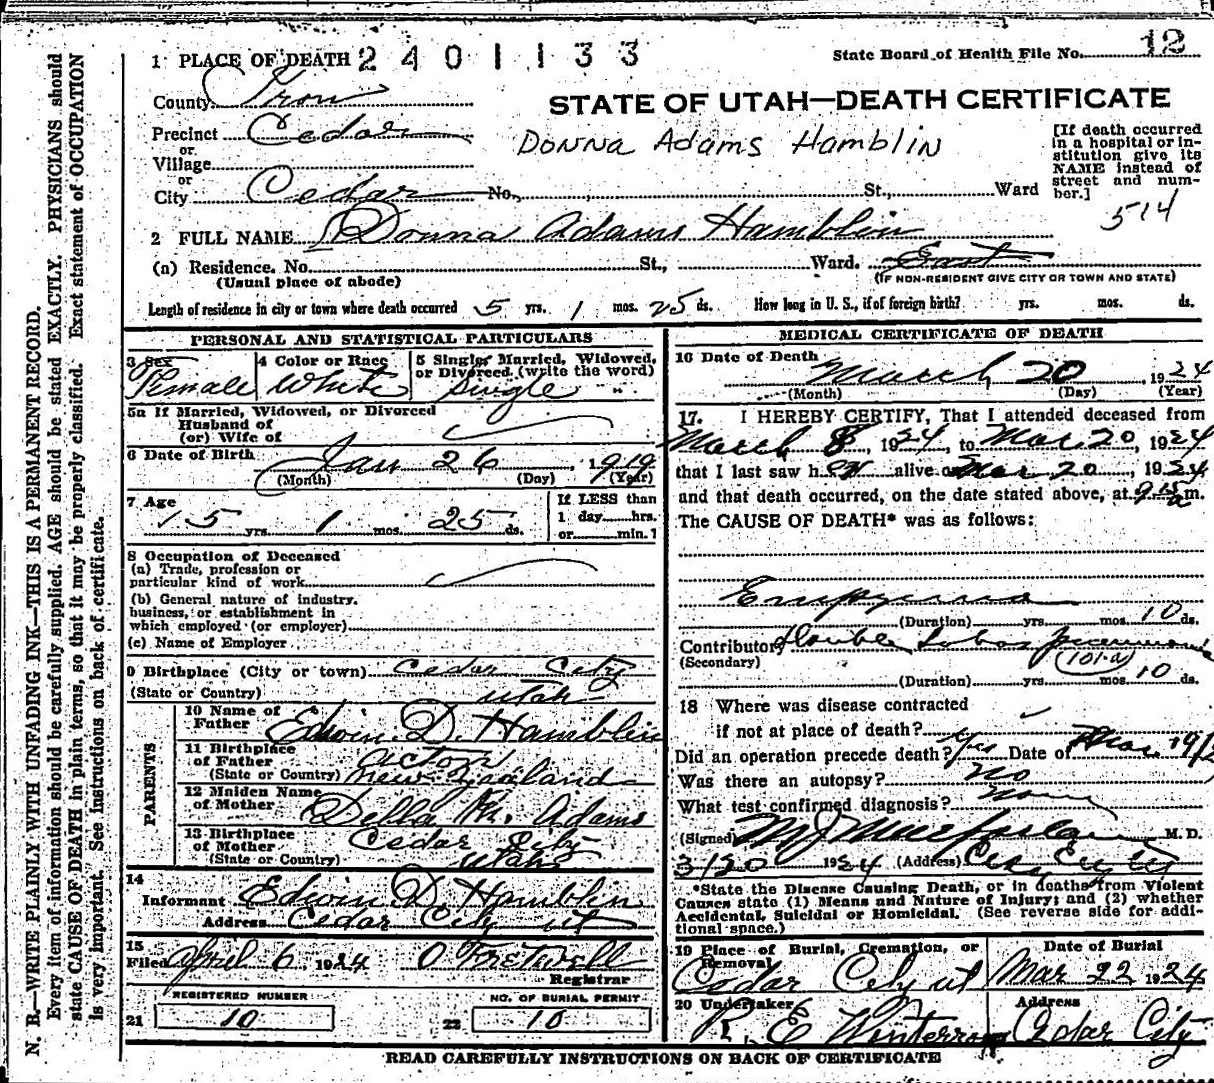 1 PLACE OF DEATH 2401133
State Board of Health File No. 12
County Iron
STATE OF UTAH—DEATH CERTIFICATE
Precinct Cedar
or
Village
or
City Cedar No. St., Ward
Donna Adams Hamblin
[If death occurred
in a hospital or in-
stitution give its
NAME instead of
street and num-
ber.]
514
2 FULL NAME Donna Adams Hamblin
(a) Residence. No. St., Ward. East
(Usual place of abode)
(IF NON-RESIDENT GIVE CITY OR TOWN AND STATE)
Length of residence in city or town where death occurred 5 yrs. 1 mos. 25 ds. How long in U. S., if of foreign birth? yrs. mos. ds.
PERSONAL AND STATISTICAL PARTICULARS
3 Sex
Female
4 Color or Race
White
5 Single, Married, Widowed,
or Divorced (write the word)
Single
5a If Married, Widowed, or Divorced
Husband of
(or) Wife of
6 Date of Birth
Jan 26, 1919
(Month) (Day) (Year)
7 Age
5 yrs. 1 mos. 25 ds.
If LESS than
1 day hrs.
or min.?
8 Occupation of Deceased
(a) Trade, profession or
particular kind of work
(b) General nature of industry,
business, or establishment in
which employed (or employer)
(c) Name of Employer
9 Birthplace (City or town) Cedar City
(State or Country) Utah
PARENTS
10 Name of
Father Edwin D. Hamblin
11 Birthplace
of Father Acton
(State or Country) New Zealand
12 Maiden Name
of Mother Della M. Adams
13 Birthplace
of Mother Cedar City
(State or Country) Utah
14
Informant Edwin D. Hamblin
Address Cedar City ut
15
Filed April 6, 1924 O Fretwell
Registrar
REGISTERED NUMBER
21 10
NO. OF BURIAL PERMIT
22 10
MEDICAL CERTIFICATE OF DEATH
16 Date of Death
March 20, 1924
(Month) (Day) (Year)
17. I HEREBY CERTIFY, That I attended deceased from
March 8, 1924, to Mar 20, 1924
that I last saw her alive on Mar 20, 1924
and that death occurred, on the date stated above, at 9.15 a m.
The CAUSE OF DEATH* was as follows:
Empyema
(Duration) yrs. mos. 10 ds.
Contributory Double Lobar pneumonia
(Secondary)
(101-a)
(Duration) yrs. mos. 10 ds.
18 Where was disease contracted
if not at place of death?
Did an operation precede death? Yes Date of Mar 19/2
Was there an autopsy? No
What test confirmed diagnosis? None
(Signed) M J Macfarlane M. D.
3/20 1924 (Address) Cedar City
*State the Disease Causing Death, or in deaths from Violent
Causes state (1) Means and Nature of Injury; and (2) whether
Accidental, Suicidal or Homicidal. (See reverse side for addi-
tional space.)
19 Place of Burial, Cremation, or
Removal
Cedar City ut
Date of Burial
Mar 22 1924
20 Undertaker
R. E Winterrose
Address
Cedar City
READ CAREFULLY INSTRUCTIONS ON BACK OF CERTIFICATE
N. B.—WRITE PLAINLY WITH UNFADING INK—THIS IS A PERMANENT RECORD.
Every item of information should be carefully supplied. AGE should be stated EXACTLY. PHYSICIANS should
state CAUSE OF DEATH in plain terms, so that it may be properly classified. Exact statement of OCCUPATION
is very important. See instructions on back of certificate.